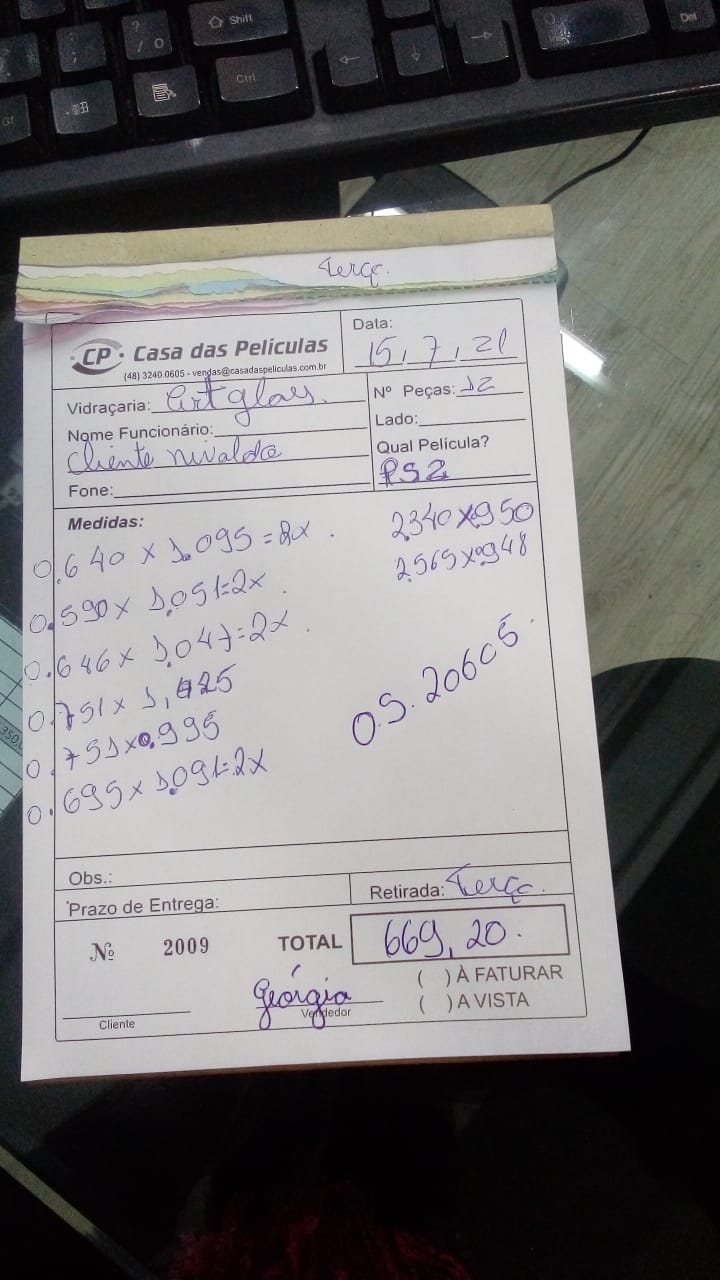 Shift
Ctrl
Del
Terça.
CP. Casa das Películas
(48) 3240.0605 - vendas@casadaspeliculas.com.br
Data:
15, 7, 21
Vidraçaria: Art glass.
Nº Peças: 12
Nome Funcionário:
Lado:
Cliente nivaldo
Qual Película?
PS2
Fone:
Medidas:
0.640 x 1.095 = 2x .
2.340 x 950
0.590 x 1.051=2x .
2.565 x 0.948
0.646 x 1.047=2x .
0.751 x 1,425
0.751 x 0.995
0.695 x 1.091=2x
O.S. 20605.
Obs.:
Prazo de Entrega:
Retirada: Terça.
Nº 2009
TOTAL 669,20.
( ) À FATURAR
( ) A VISTA
Geórgia
Cliente
Vendedor